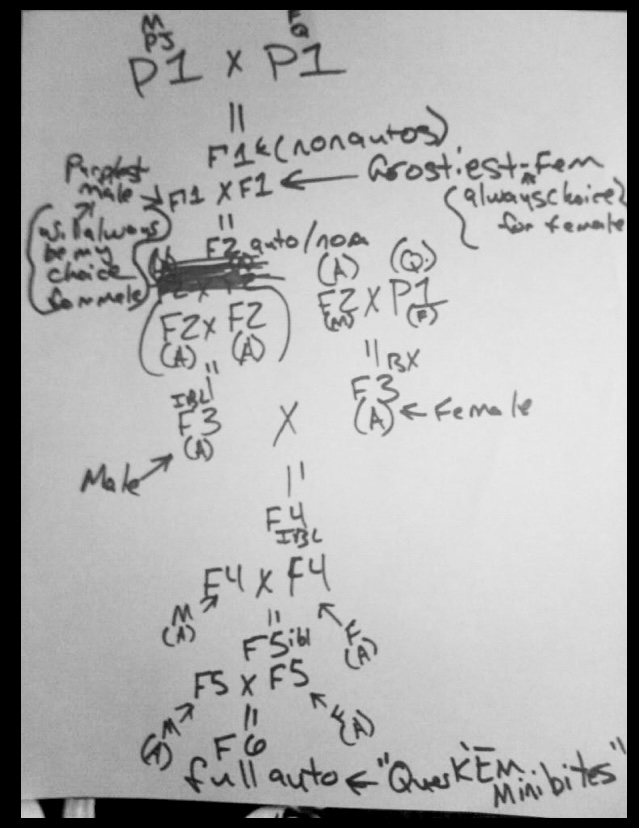 M F
PJ Q
P1 x P1
=
F1 (nonautos)
Purplest male
F1 x F1
Frostiest-Fem
(always choice for female)
always be my choice for male
=
F2 auto/non
F2 x F2
(A) (A)
(A) (Q.)
F2 x P1
(M) (F)
= BX
F3
(A) ← Female
=
IBL
F3
(A)
Male
X
=
F4
IBL
F4 x F4
M
(A)
F
(A)
=
F5 ibl
F5 x F5
M
(A)
F
(A)
=
F6
full auto ← "QuerKĒm
Minibites"